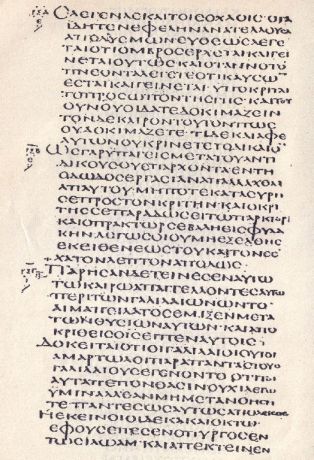 ΕΛΕΓΕΝΔΕΚΑΙΤΟΙϹΟΧΛΟΙϹ·ΟΤΑ
ΙΔΗΤΕΝΕΦΕΛΗΝΑΝΑΤΕΛΛΟΥϹΑ
ΑΠΟΔΥϹΜΩΝΕΥΘΕΩϹΛΕΓΕ
ΤΑΙΟΤΙΟΜΒΡΟϹΕΡΧΕΤΑΙΚΑΙΓΕΙ
ΝΕΤΑΙΟΥΤΩϹΚΑΙΟΤΑΝΝΟΤΟ
ΠΝΕΟΝΤΑΛΕΓΕΤΕΟΤΙΚΑΥϹΩ
ΕϹΤΑΙΚΑΙΓΕΙΝΕΤΑΙ·ΥΠΟΚΡΙΤΑΙ
ΤΟΠΡΟϹΩΠΟΝΤΗϹΓΗϹ·ΚΑΙΤΟΥ
ΟΥΝΟΥΟΙΔΑΤΕΔΟΚΙΜΑΖΕΙΝ
ΤΟΝΔΕΚΑΙΡΟΝΤΟΥΤΟΝΠΩϹ
ΟΥΔΟΚΙΜΑΖΕΤΕ·ΤΙΔΕΚΑΙΑΦΕ
ΑΥΤΩΝΟΥΚΡΙΝΕΤΕΤΟΔΙΚΑΙΟ
ΩϹΓΑΡΥΠΑΓΕΙϹΜΕΤΑΤΟΥΑΝΤΙ
ΔΙΚΟΥϹΟΥΕΠΑΡΧΟΝΤΑΕΝΤΗ
ΟΔΩΔΟϹΕΡΓΑϹΙΑΝΑΠΗΛΛΑΧΘΑΙ
ΑΠΑΥΤΟΥ·ΜΗΠΟΤΕΚΑΤΑϹΥΡΗ
ϹΕΠΡΟϹΤΟΝΚΡΙΤΗΝ·ΚΑΙΟΚΡΙ
ΤΗϹϹΕΠΑΡΑΔΩϹΕΙΤΩΠΡΑΚΤΟΡΙ
ΚΑΙΟΠΡΑΚΤΩΡϹΕΒΑΛΗΕΙϹΦΥΛΑ
ΚΗΝΛΕΓΩϹΟΙΟΥΜΗΕΞΕΛΘΗϹ
ΕΚΕΙΘΕΝΕΩϹΤΟΥΚΑΙΤΟΝΕϹ
ΧΑΤΟΝΛΕΠΤΟΝΑΠΟΔΩϹ
ΠΑΡΗϹΑΝΔΕΤΕΙΝΕϹΕΝΑΥΤΩ
ΤΩΚΑΙΡΩΑΠΑΓΓΕΛΛΟΝΤΕϹΑΥΤΩ
ΠΕΡΙΤΩΝΓΑΛΙΛΑΙΩΝΩΝΤΟ
ΑΙΜΑΠΕΙΛΑΤΟϹΕΜΙΞΕΝΜΕΤΑ
ΤΩΝΘΥϹΙΩΝΑΥΤΩΝ·ΚΑΙΑΠΟ
ΚΡΙΘΕΙϹΟΙϹΕΙΠΕΝΑΥΤΟΙϹ
ΔΟΚΕΙΤΑΙΟΤΙΟΙΓΑΛΙΛΑΙΟΙΟΥΤΟΙ
ΑΜΑΡΤΩΛΟΙΠΑΡΑΠΑΝΤΑϹΤΟΥϹ
ΓΑΛΙΛΑΙΟΥϹΕΓΕΝΟΝΤΟ
ΑΥΤΑΠΕΠΟΝΘΑϹΙΝΟΥΧΙΛΕΓΩ
ΥΜΙΝΑΛΛΕΑΝΜΗΜΕΤΑΝΟΗϹΗ
ΤΕΠΑΝΤΕϹΩϹΑΥΤΩϹΑΠΟΛΕΙϹΘΕ
ΗΕΚΕΙΝΟΙΟΙΔΕΚΑΚΑΙΟΚΤΩ
ΕΦΟΥϹΕΠΕϹΕΝΟΠΥΡΓΟϹΕΝ
ΤΩϹΙΛΩΑΜ·ΚΑΙΑΠΕΚΤΕΙΝΕΝ